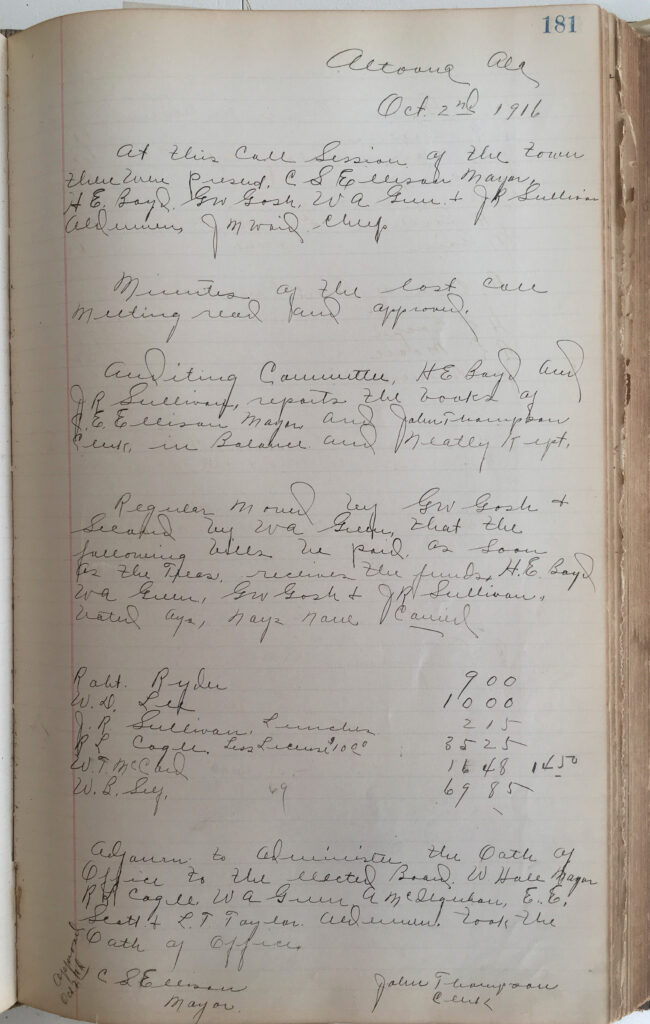 181
Altoona Ala
Oct. 2nd 1916
At this Call Session of the town
there were present, C S Ellison Mayor,
H. E. Boyd, GW Gosh, W A Green & J R Sullivan
Aldermen, J M Waid, Chief
Minutes of the last call
meeting read and approved.
Auditing Committee, H E Boyd and
J R Sullivan, reports the books of
C. E. Ellison Mayor and John Thompson
Clerk, in Balance and Neatly Kept.
Regular Moved by GW Gosh &
Second by W A Green, that the
following bills be paid, as soon
as the Treas. receives the funds, H. E. Boyd
W A Green, GW Gosh & J R Sullivan,
voted aye, nays none Carried
Robt. Ryder 9 00
W. D. Lee 10 00
J. R. Sullivan, Lunches 2 15
R L Cagle, Less License 35 25
W. T. McCard 16 48 14 50
W. B. 69 69 85
Adjourn to Administer the Oath of
Office to the elected Board, W Hale Mayor
R L Cagle, W A Green, A E. E.
Scott & L. T Taylor Aldermen, took the
Oath of Office
Approved
C S Ellison John Thompson
Mayor. Clerk